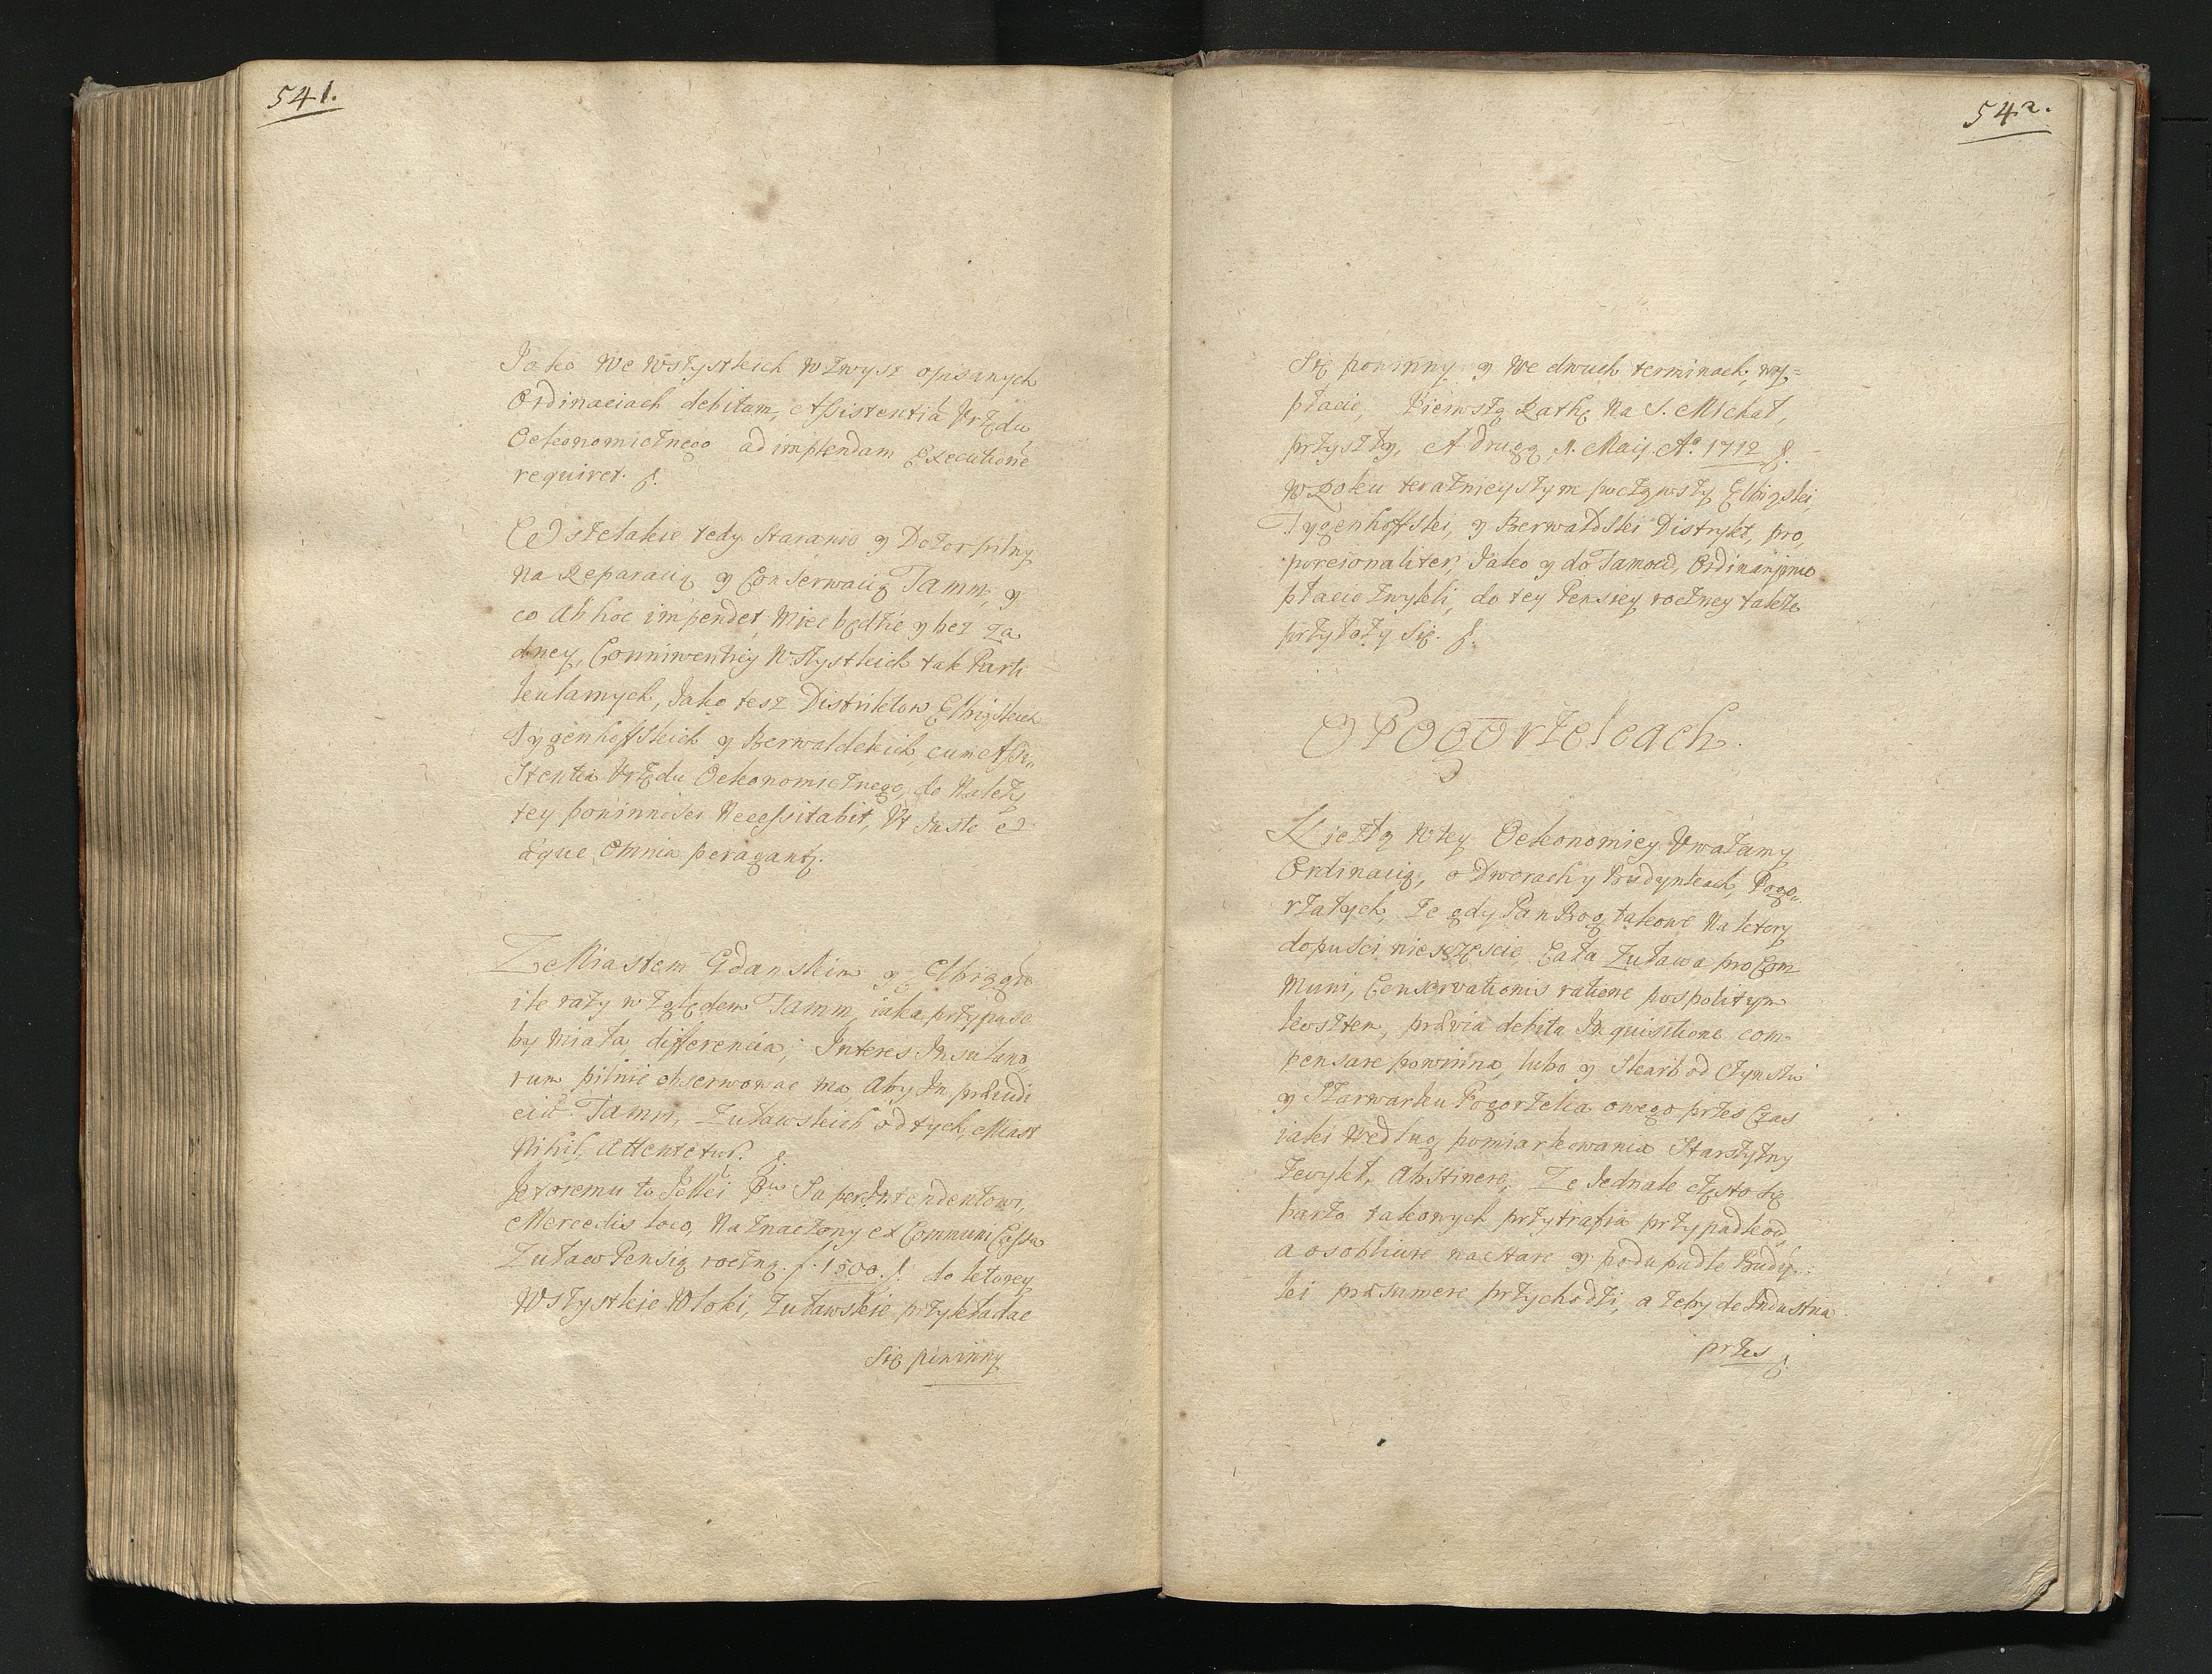 541.
Jako we wszystkich wzwysz opisanych
Ordinaciach debitam, Assistentia Urzędu
Oekonomicznego ad implendam Executionē
requiret. f.
Wszelakie tedy staranie y Dozor pilny
na Reparacią y Conserwacią Tamm, y
co ab hoc impendet, miec będzie y bez za
dney, Conniwentiey wszystkich tak Parti
kularnych, Jako tesz Distriktow Elbigskich
Tygenhoffskich y Berwaldskich, cum Assi„
stentia Urzędu Oekonomicznego, do Należy
tey powinnosci Necessitabit, Ut Juste et
æque, Omnia peragantʒ.
Z Miastem Gdanskim y Elbiągiē
ile razy względem Tamm, iaka przypasc
by miała, differencia, Interes Insulano„
rum pilnie obserwowac ma, Aby In præiudi
ciū Tamm, Zuławskich od tych, Miast
Nihil, Attentetur. f.
Ktoremu to Pellei Pu Superintendentowi,
Mercedis loco, Naznaczony ex Communi Cassa
Zuław Pensią roczną. f. 1500. f. do ktorey
Wszystkie Wloki, Zuławskie, przykładac
Się powinny
542.
Się powinny y we dwuch terminach, wy=
płacic, Pierwszą Rathę Na S. Michał,
przyszły, A Drugą 1. Maij. Aº. 1712 f.
w Roku teraznieyszym począwszy Elbigski,
Tygenhoffski, y Berwaldski Distrykt, pro,
porcionaliter, Jako y do Tamoed, Ordinaryinie
płacic zwykli, do tey Pensiey roczney także
przyłoży Się. f.
O Pogorzelcach.
Kieztą w tey Oekonomiey Uważamy
Ordinacią, o Dworach y Budynkach, Pogo„
rzałych, Ze gdy Pan Bog takowe Na ktory
dopusci nieszczęscie, Cała Zuława pro Com
Muni, Conservationis ratione pospolitym
kosztem, prævia debita Inquisitione com„
pensare powinna, lubo y Skarb od Czynszu
y Szarwarku Pogorzelca owego przes Czas
iaki Według, pomiarkowania Starszyzny
zwykł, Abstinere, Ze Jednak często się
barzo takowych przytrafia przypadkow,
a osobliwie na stare y podupadłe Budy„
ki præsumere przychodzi, a zeby de Industria
przes f.